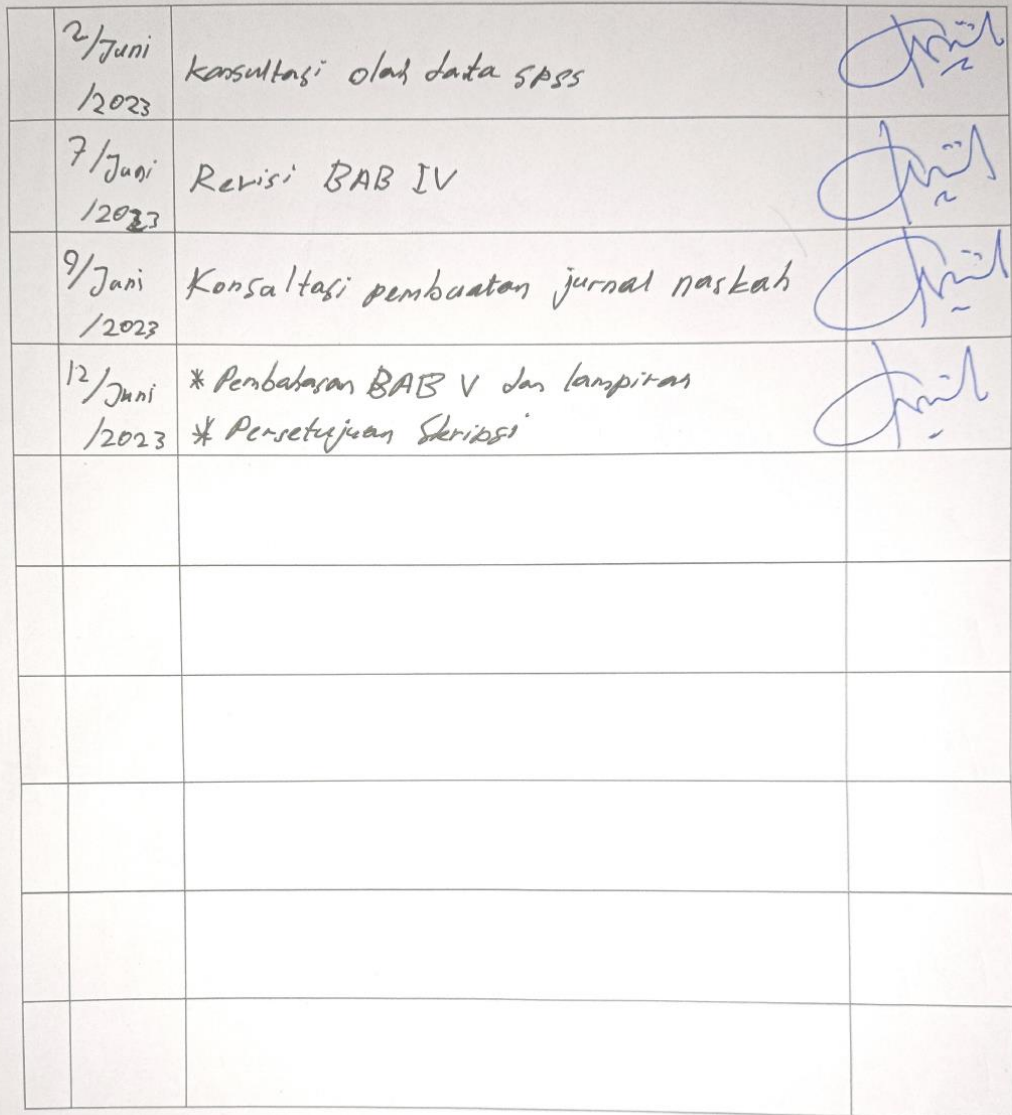 2/Juni
/2023
Konsultasi olah data SPSS
7/Juni
/2023
Revisi BAB IV
9/Juni
/2023
Konsultasi pembuatan jurnal naskah
12/Juni
/2023
* Pembahasan BAB V dan lampiran
* Persetujuan Skripsi